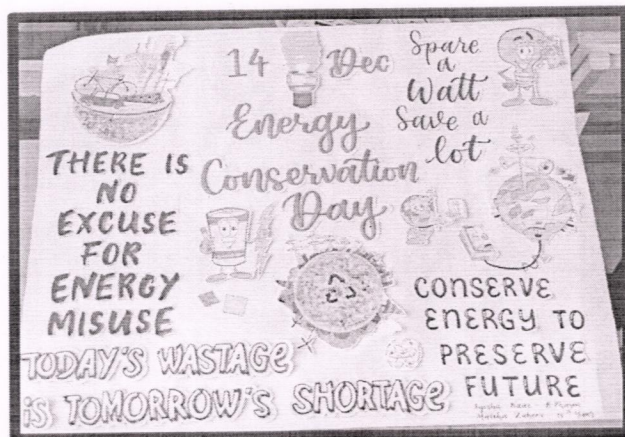 14 Dec
Energy
Conservation
Day
Spare
a
Watt
Save a
lot
THERE IS
NO
EXCUSE
FOR
ENERGY
MISUSE
CONSERVE
ENERGY TO
PRESERVE
FUTURE
TODAY'S WASTAGE
iS TOMORROW'S SHORTAGE